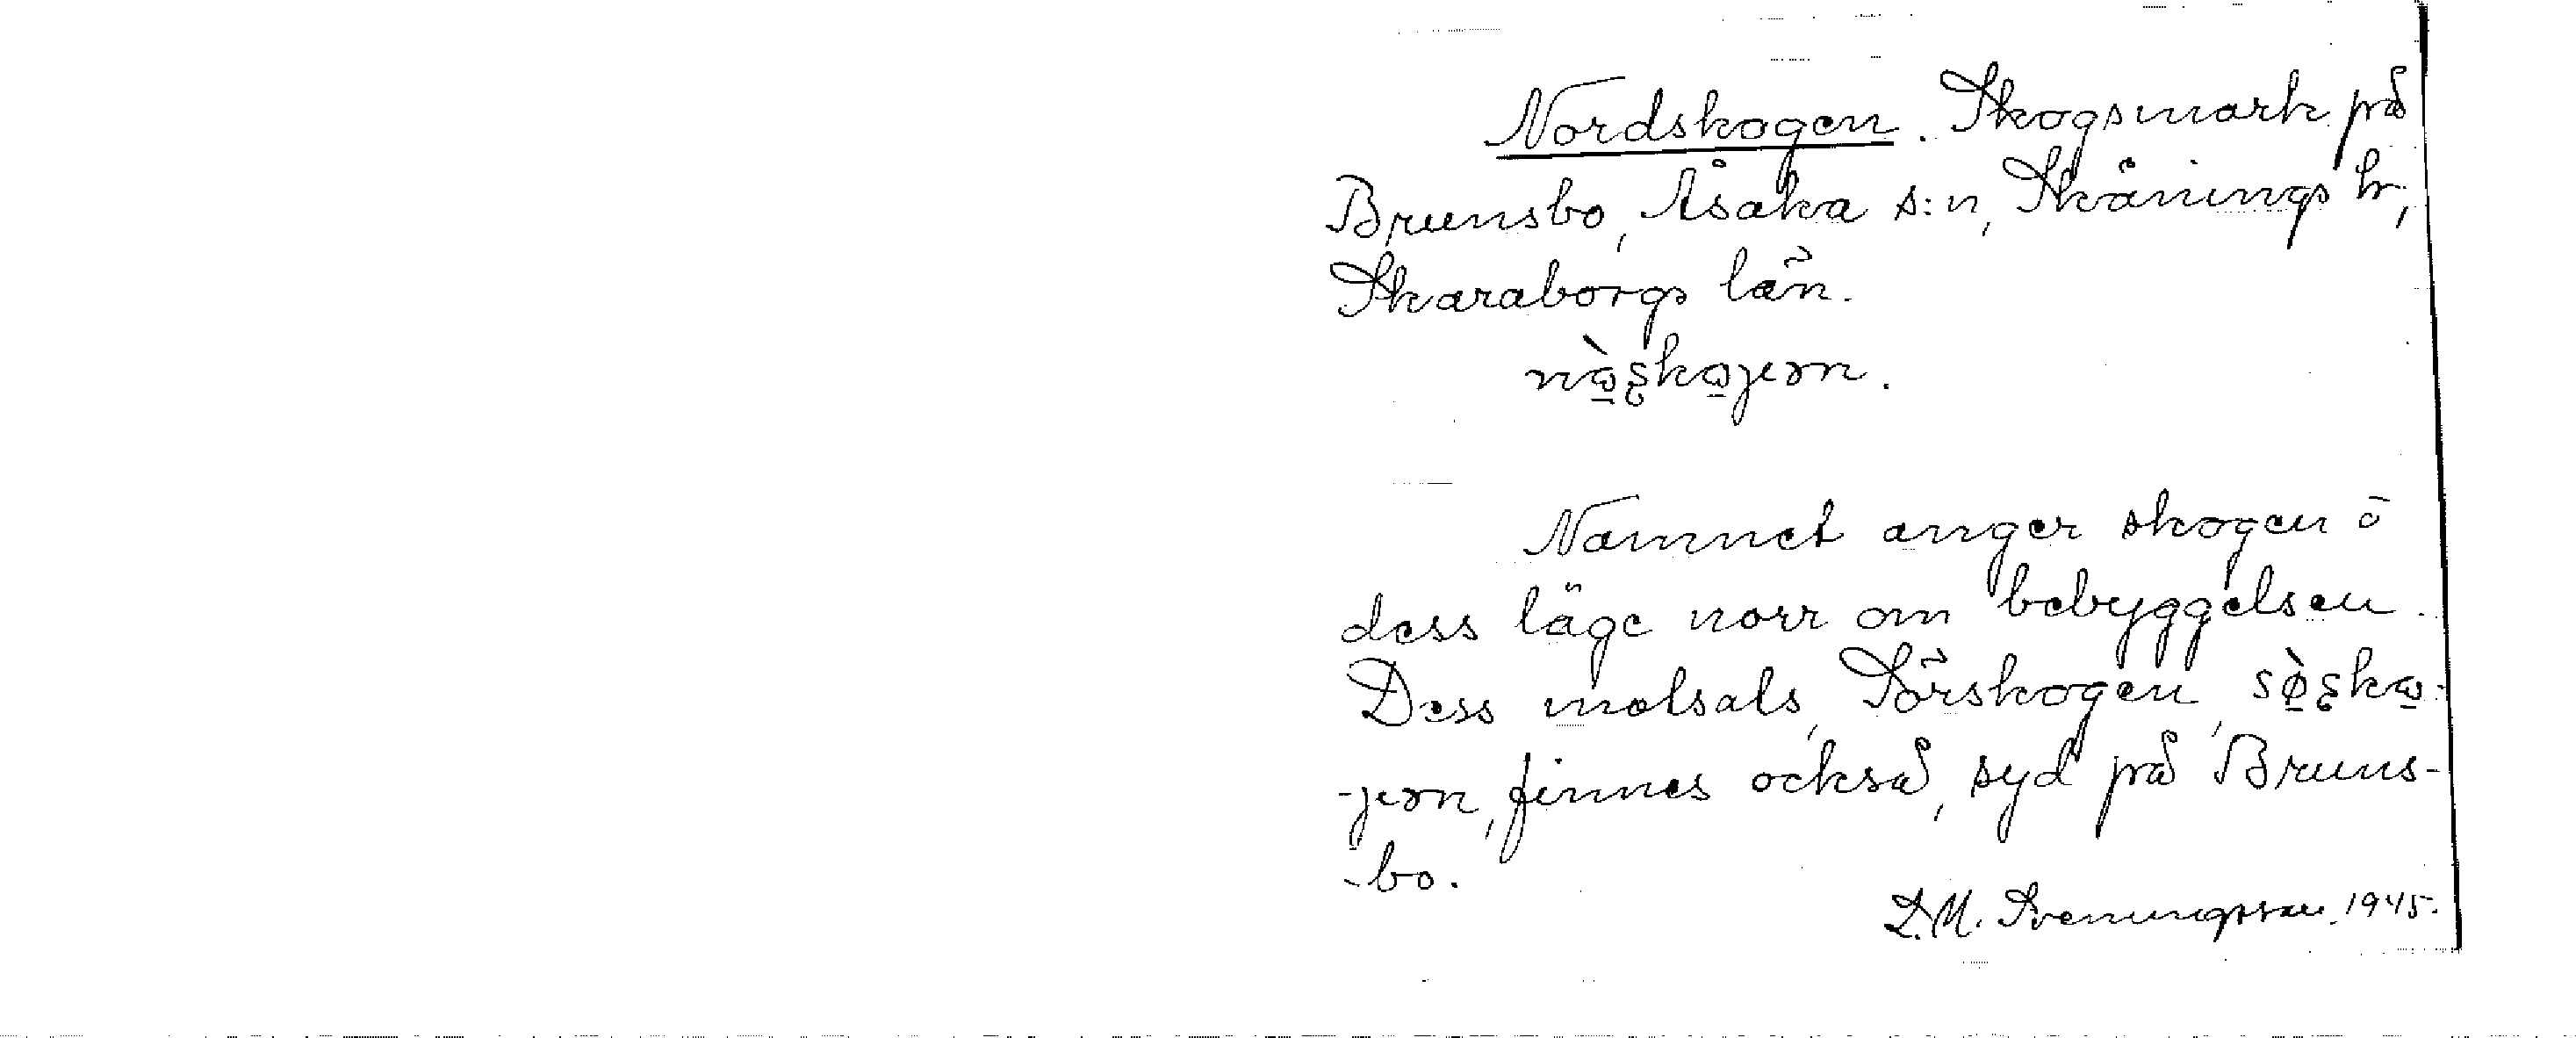 Nordskogen. Skogsmark på
Brunsbo, Åsaka s:n, Skånings hr,
Skaraborgs län.
nò̱ʂko̱jen.
Namnet anger skogen o
dess läge norr om bebyggelsen.
Dess motsats, Sörskogen, sø̱̀ʂko̱-
-jen, finnes också, syd på Bruns-
-bo.
D.M. Sveningsson. 1945.